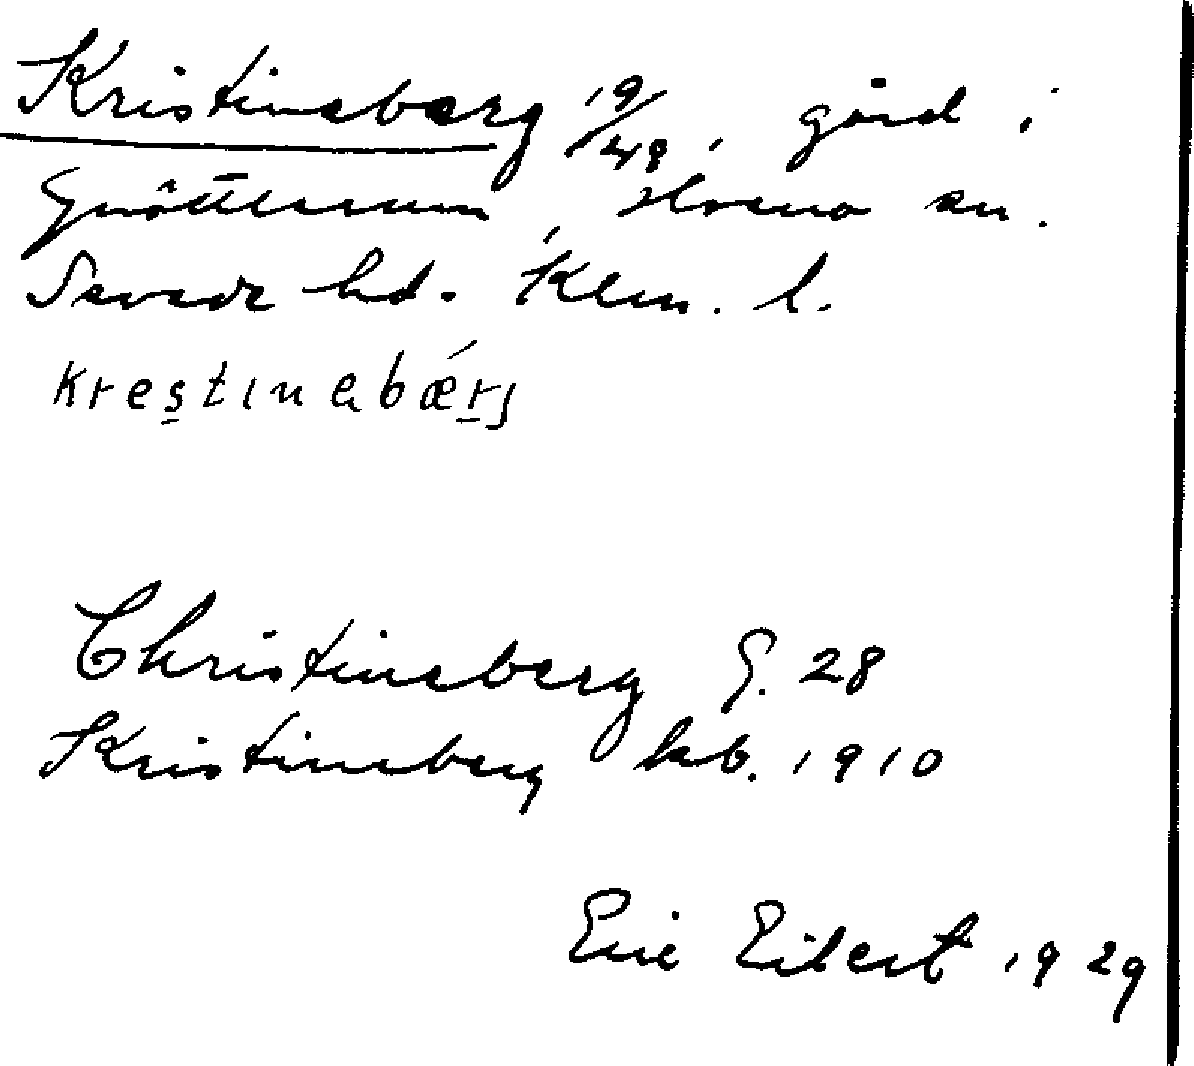 Kristineberg 19/48, gård i
Gnöttlerum, Horna sn.
Sevede hd. Klm. l.
krestinabǽrj
Christineberg G. 28
Kristineberg kb. 1910
Eric Eilert 1929